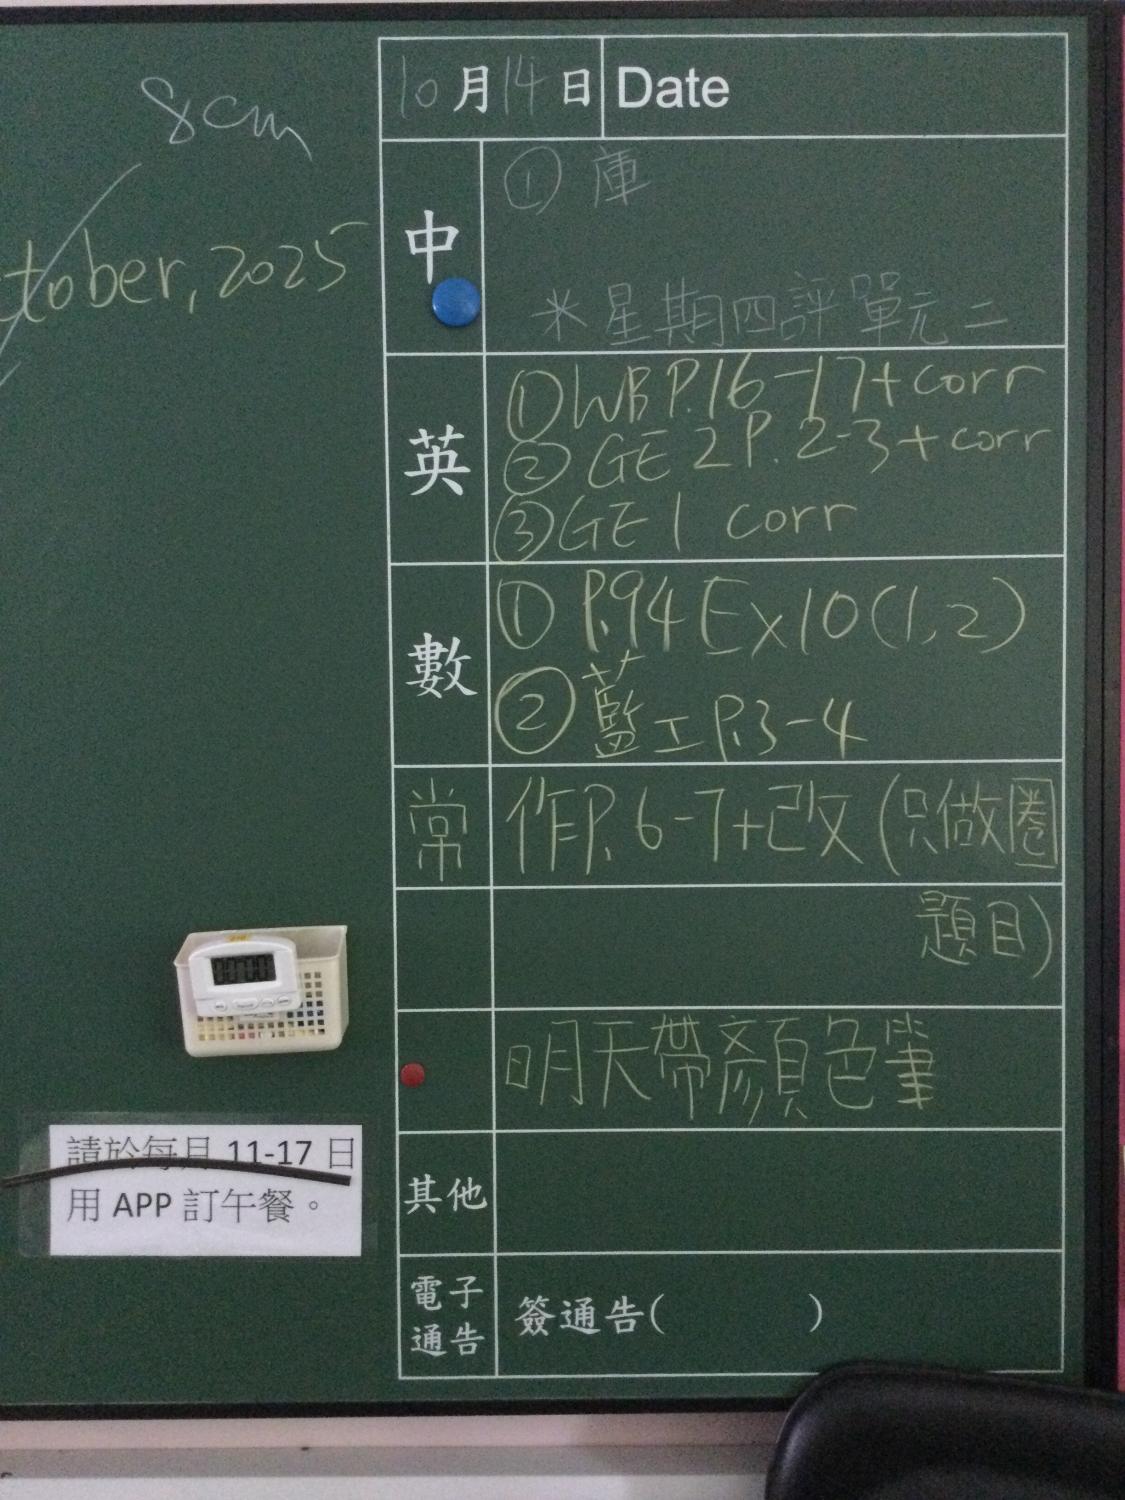 8cm
tober, 2025
10月14日 Date
中
① 庫
*星期四評單元二
英
①WB P.16-17+corr
②GE 2 P.2-3+corr
③GE1 corr
數
① P.94 Ex10(1,2)
② 藍工 P.3-4
常
作P.6-7+改(只做圈
題目)
明天帶顏色筆
00:00
請於每月 11-17 日
用 APP 訂午餐。
其他
電子
通告
簽通告( )